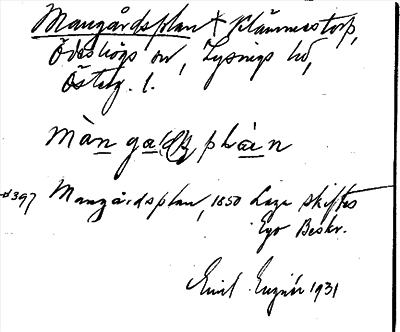 Mangårdsplan + Klämmestorp,
Ödeshögs sn, Lysings hd,
Österg. l.
Màn ga(d)s plàn
#397 Mangårdsplan, 1850 Laga skiftes
Ego Beskr.
Emil 1931